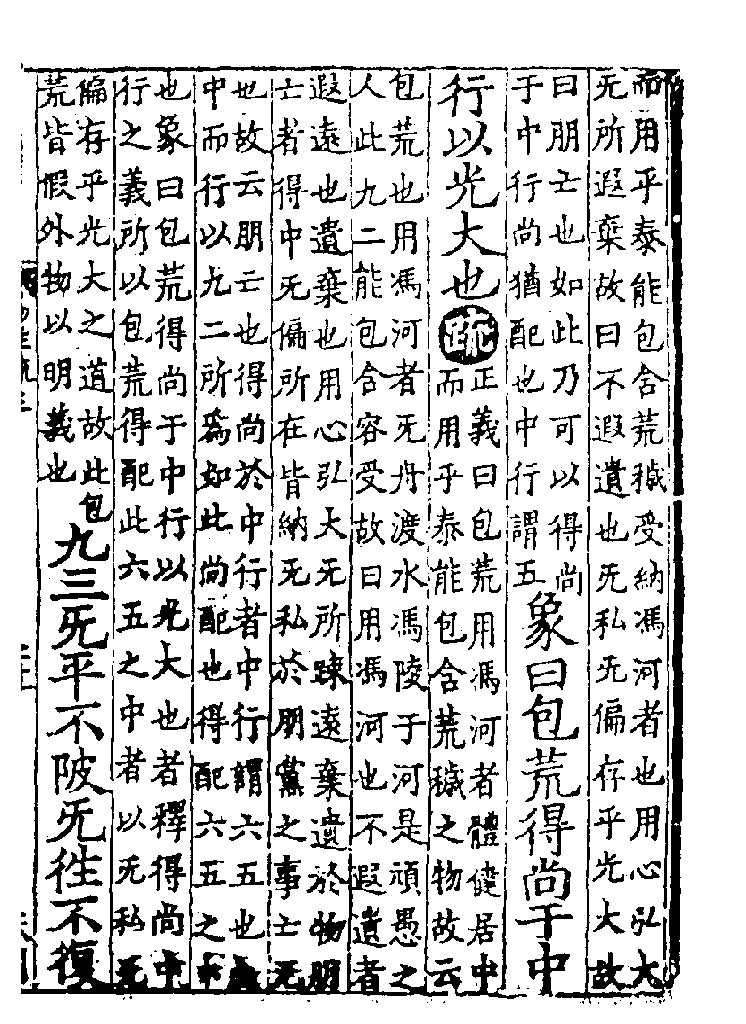 而用乎泰能包含荒穢受納馮河者也用心弘大
无所遐棄故曰不遐遺也旡私旡偏存乎光大故
曰朋亡也如此乃可以得尚
于中行尚猶配也中行謂五
象曰包荒得尚于中
行以光大也
疏
正義曰包荒用馮河者體健居中
而用乎泰能包含荒穢之物故云
包荒也用馮河者旡舟渡水馮陵于河是頑愚之
人此九二能包含容受故曰用馮河也不遐遺者
遐遠也遺棄也用心弘大无所踈遠棄遺於物朋
亡者得中旡偏所在皆納旡私於朋黨之事亡无
也故云朋亡也得尚於中行者中行謂六五也
中而行以九二所爲如此尚配也得配六五之
也象曰包荒得尚于中行以光大也者釋得尚中
行之義所以包荒得配此六五之中者以旡私旡
偏存乎光大之道故此包
荒皆假外物以明義也
九三旡平不陂旡往不復